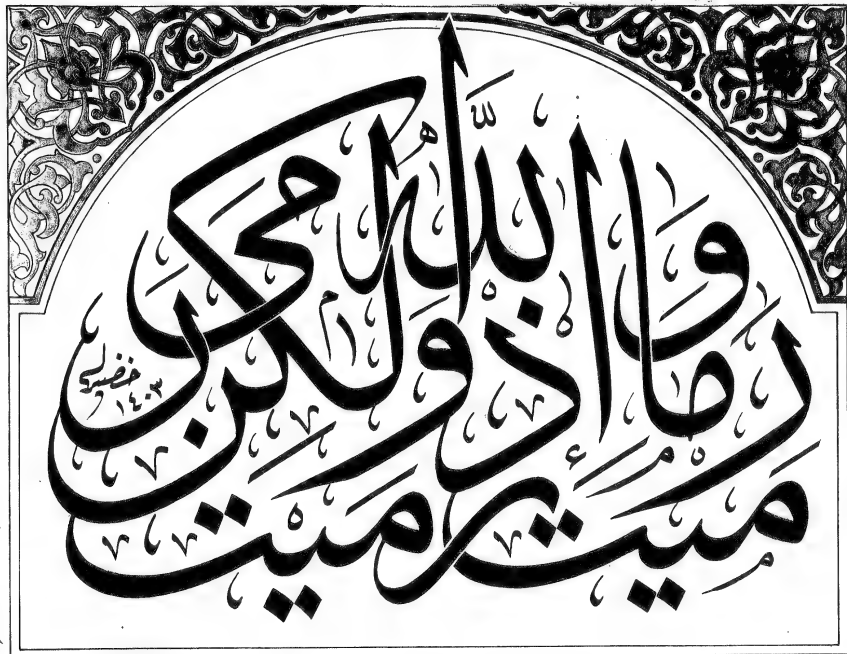 وما رميت إذ رميت ولكن الله رمى
١٤٠٣